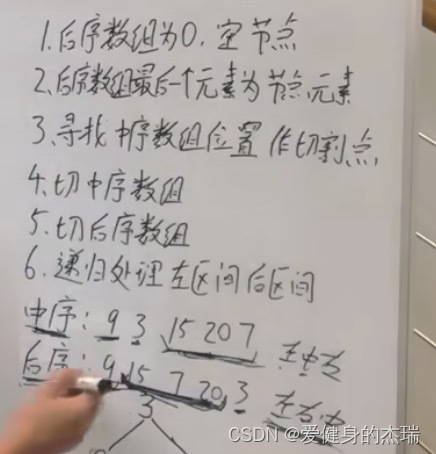 1.后序数组为0,空节点
2.后序数组最后一个元素为节点元素
3.寻找中序数组位置作切割点
4.切中序数组
5.切后序数组
6.递归处理左区间后区间
中序: 9 3 15 20 7 左中右
后序: 9 15 7 20 3 左右中
3
CSDN @爱健身的杰瑞